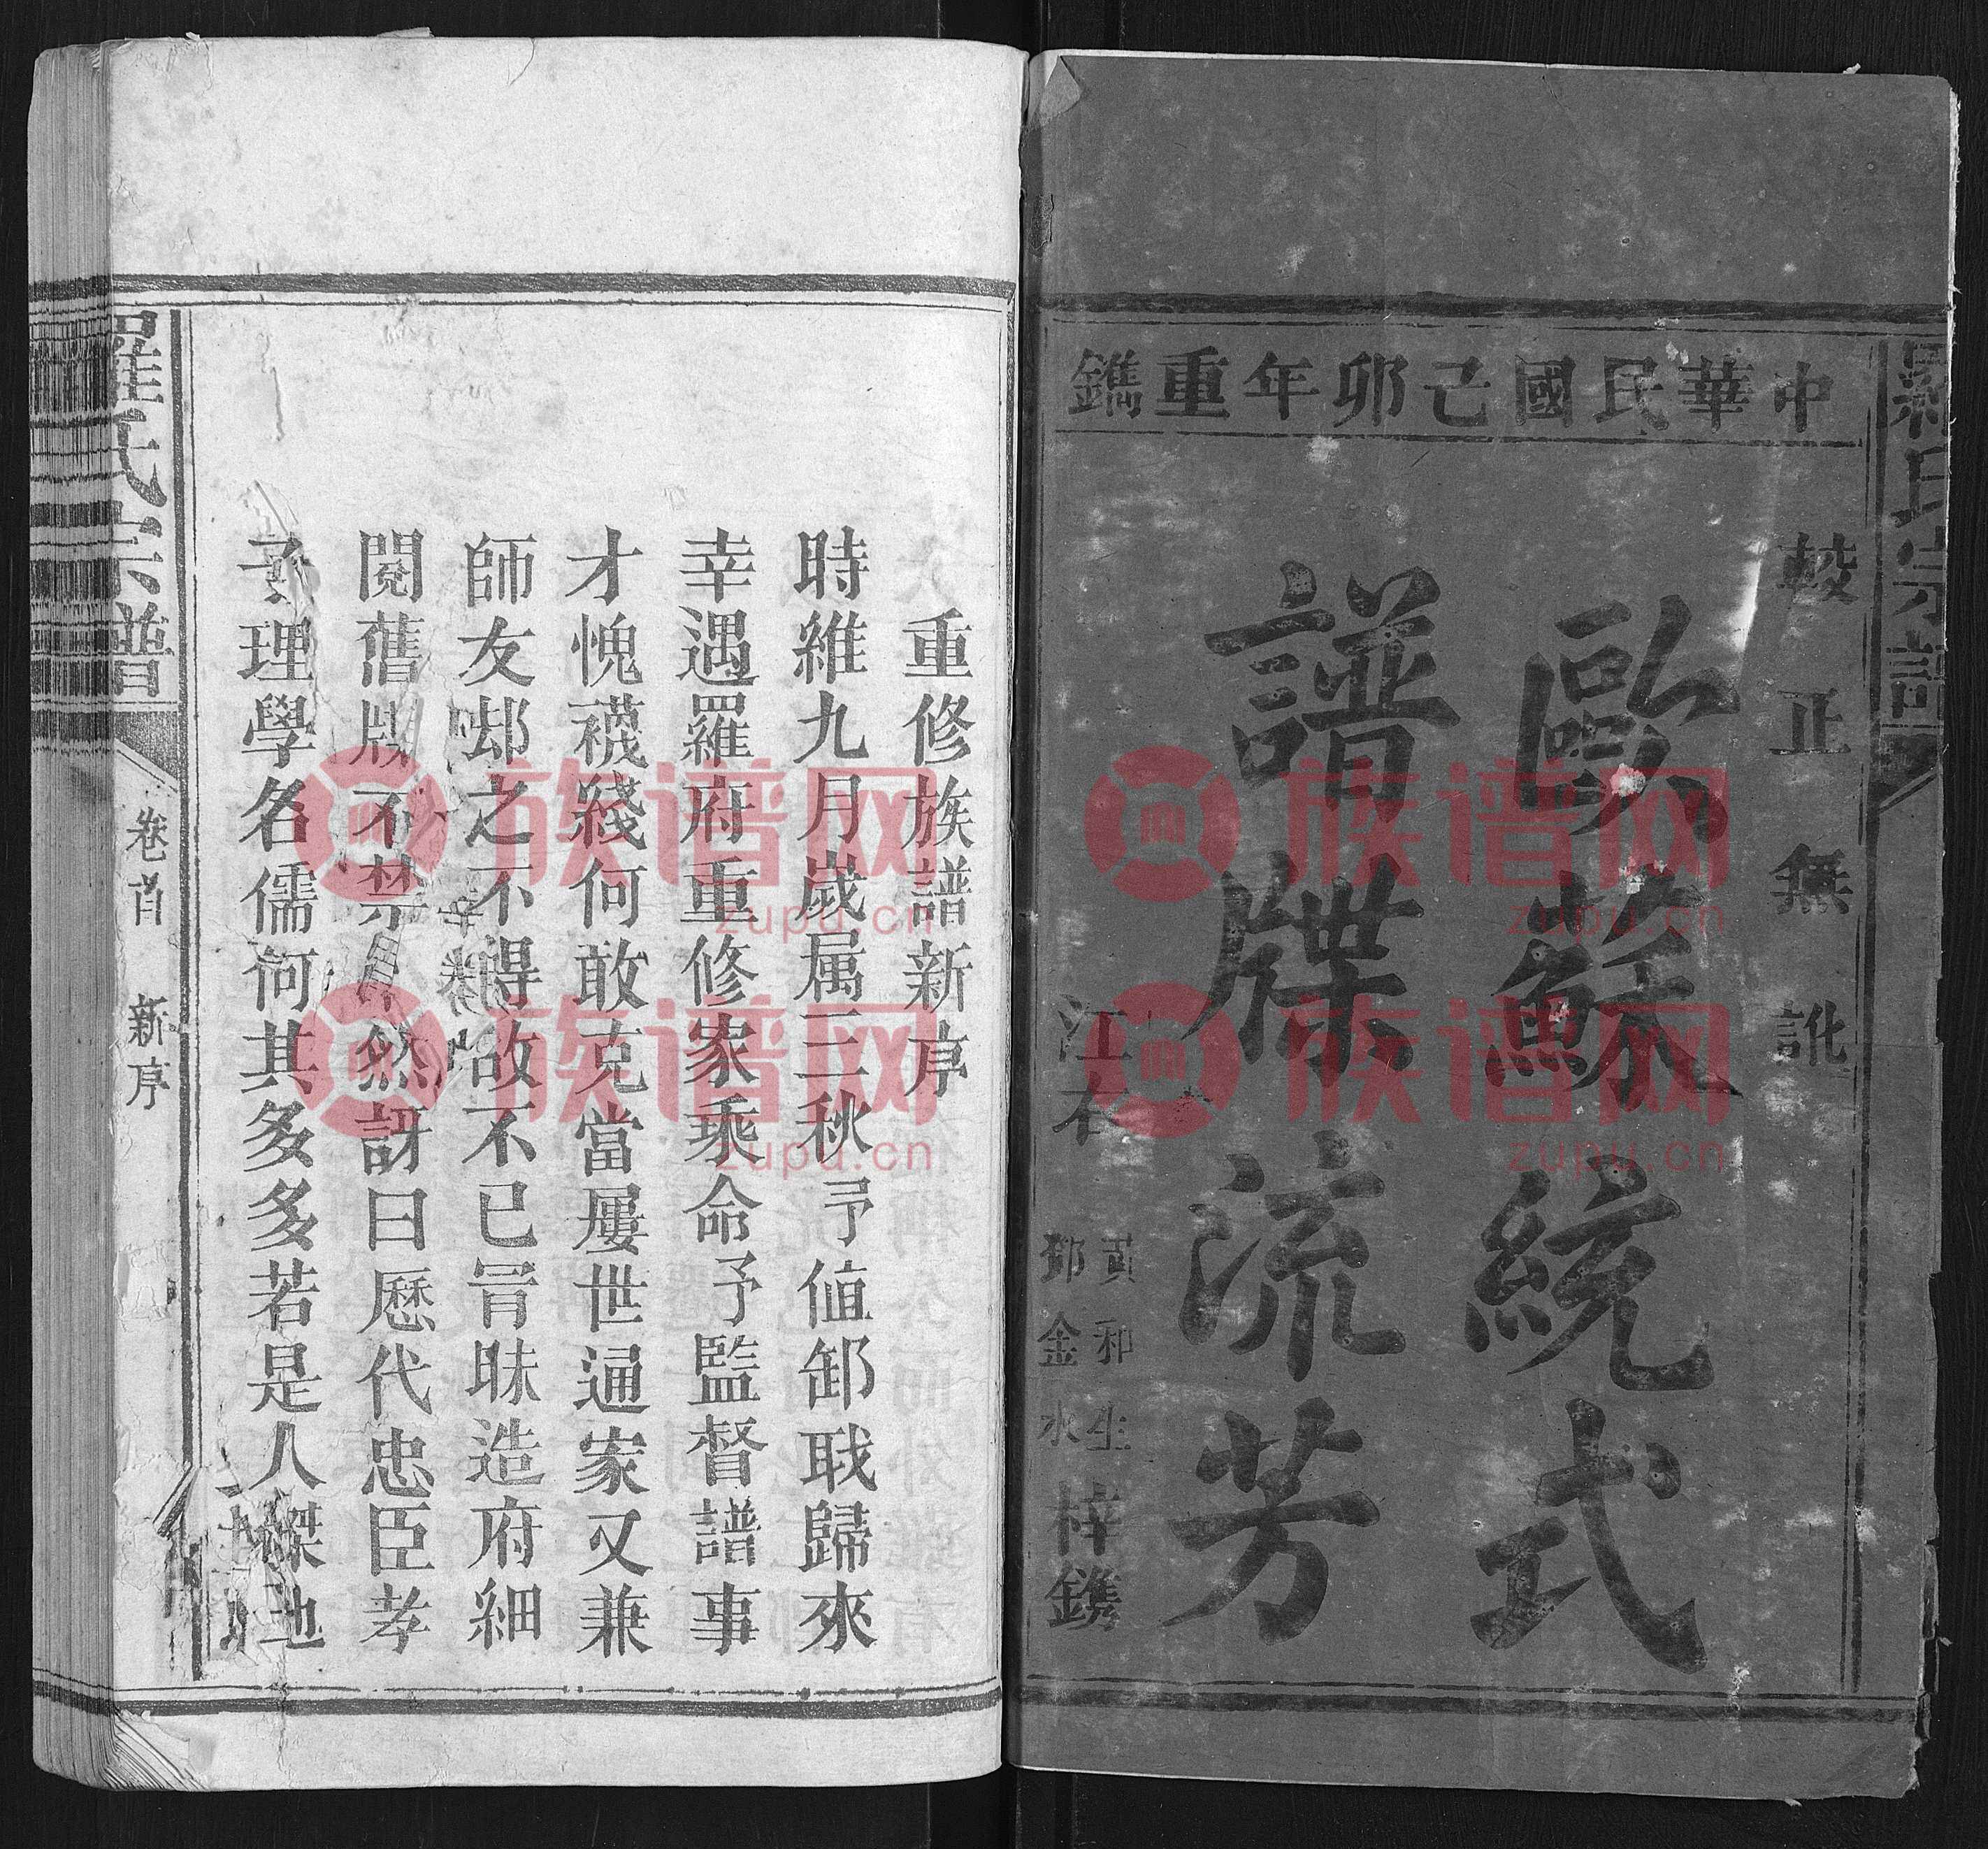 羅氏宗譜
中華民國己卯年重鐫
較正無訛
歐蘇統式
譜牒流芳
江右
黃和生
鄧金水
梓鐫
重修族譜新序
時維九月歲属三秋予值卸職歸來
幸遇羅府重修家乘命予監督譜事
才愧襪綫何敢克當屢世通家又兼
師友却之不得故不已冐昧造府細
閱舊牒不禁 然訝曰歷代忠臣孝
子理學名儒何其多多若是人傑地
羅氏宗譜
卷首
新序
族谱网
zupu.cn
族谱网
zupu.cn
族谱网
zupu.cn
族谱网
zupu.cn